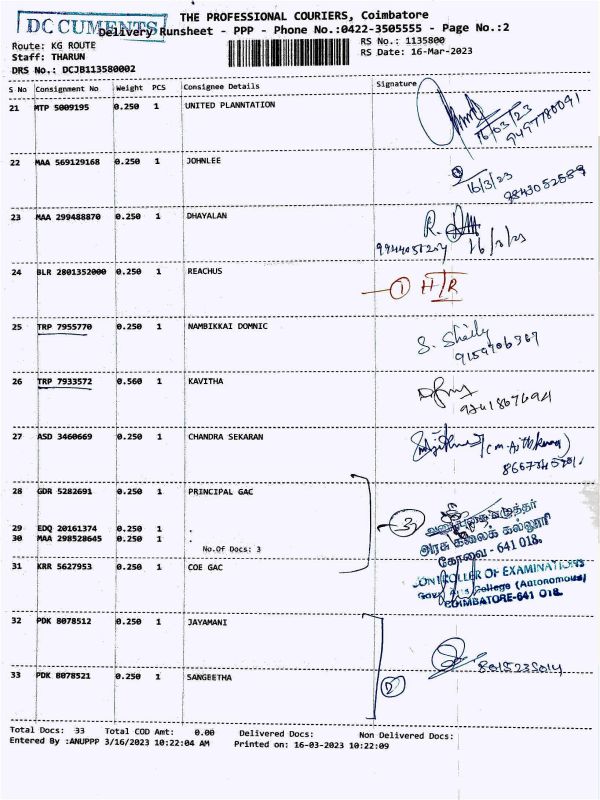 DOCUMENTS
THE PROFESSIONAL COURIERS, Coimbatore
Delivery Runsheet - PPP - Phone No.:0422-3505555 - Page No.:2
Route: KG ROUTE
RS No.: 1135800
Staff: THARUN
RS Date: 16-Mar-2023
DRS No.: DCJB113580002
S No Consignment No Weight PCS Consignee Details Signature
21 MTP 5009195 0.250 1 UNITED PLANNTATION
16/03/23
9497780091
22 MAA 569129168 0.250 1 JOHNLEE
16/3/23
9843052589
23 MAA 299488870 0.250 1 DHAYALAN
16/3/23
24 BLR 2801352000 0.250 1 REACHUS
1 H/R
25 TRP 7955770 0.250 1 NAMBIKKAI DOMNIC
S. Sheily
9159706369
26 TRP 7933572 0.560 1 KAVITHA
27 ASD 3460669 0.250 1 CHANDRA SEKARAN
28 GDR 5282691 0.250 1 PRINCIPAL GAC
3
29 EDQ 20161374 0.250 1 .
30 MAA 298528645 0.250 1 .
No.Of Docs: 3
அரசு கலைக் கல்லூரி
கோவை - 641 018.
31 KRR 5627953 0.250 1 COE GAC
CONTROLLER OF EXAMINATIONS
Govt. Arts College (Autonomous)
COIMBATORE-641 018.
32 PDK 8078512 0.250 1 JAYAMANI
33 PDK 8078521 0.250 1 SANGEETHA
2
Total Docs: 33 Total COD Amt: 0.00 Delivered Docs: Non Delivered Docs:
Entered By :ANUPPP 3/16/2023 10:22:04 AM Printed on: 16-03-2023 10:22:09